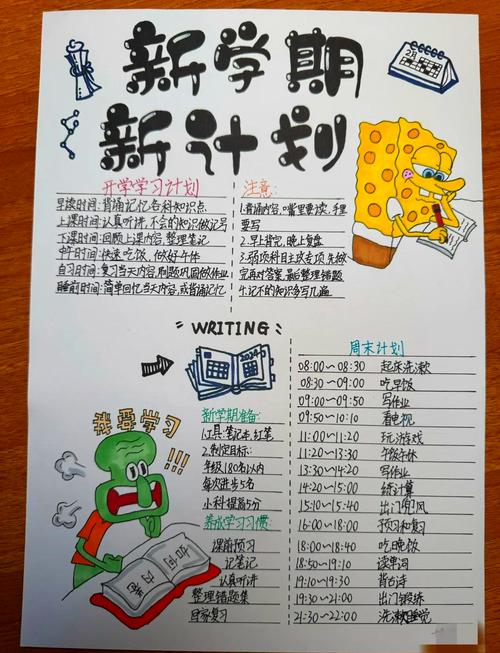 新学期
新计划
2月
开学学习计划
早读时间:背诵记忆各科知识点
上课时间:认真听讲,不会的知识做记号
下课时间:回顾上课内容,整理笔记
中午时间:快速吃饭,做好午休
自习时间:复习当天内容,刷题巩固做作业
睡前时间:简单回忆当天内容,或背诵记忆
注意:
1.背诵内容,嘴里要读,手里
要写
2.早上背完,晚上复盘
3.弱项科目主攻专项,先做
完再对答案,最后整理错题
4.记不的知识多写几遍
"WRITING"
2024
新学期准备:
1.工具:笔记本,红笔
2.制定目标:
年级180名以内
每次进步5名
小科提高5分
养成学习习惯:
课前预习
记笔记
认真听讲
整理错题集
回家复习
周末计划
08:00~08:30 起床洗漱
08:30~09:00 吃早饭
09:00~09:50 写作业
09:50~10:10 看电视
11:00~11:20 玩游戏
11:20~13:30 午饭午休
13:30~14:20 写作业
14:20~15:00 练计算
15:10~15:40 出门
16:00~18:00 预习和复习
18:00~18:40 吃晚饭
18:50~19:10 读单词
19:10~19:30 背古诗
19:30~21:00 出门锻炼
21:30~22:00 洗漱睡觉
我要学习
!!!